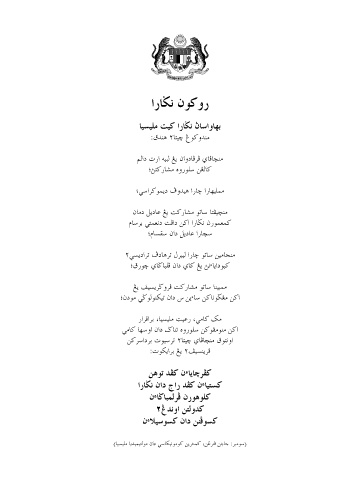 روكون نݢارا
بهاواساڽ نݢارا كيت مليسيا
مندوكوڠ چيتا٢ هندق:
منچاڤاي ڤرڤادوان يڠ لبيه ارت دالم
كالڠن سلوروه مشاركتڽ؛
ممليهارا چارا هيدوڤ ديموكراسي؛
منچيڤتا ساتو مشاركت يڠ عاديل دمان
كمعمورن نݢارا اكن داڤت دنعمتي برسام
سچارا عاديل دان سقسام؛
منجامين ساتو چارا ليبرل ترهادڤ تراديسي٢
كبودايأنڽ يڠ كاي دان ڤلباݢاي چورق؛
ممبينا ساتو مشاركت ڤروݢريسيف يڠ
اكن مڠݢوناكن ساينس دان تيكنولوݢي مودن؛
مك كامي، رعيت مليسيا، برإقرار
اكن منومڤوكن سلوروه تناݢ دان اوسها كامي
اونتوق منچاڤاي چيتا٢ ترسبوت برداسركن
ڤرينسيڤ٢ يڠ بريكوت:
كڤرچايأن كڤد توهن
كستيأن كڤد راج دان نݢارا
كلوهورن ڤرلمباݢأن
كدولتن اوندڠ٢
كسوڤنن دان كسوسيلاءن